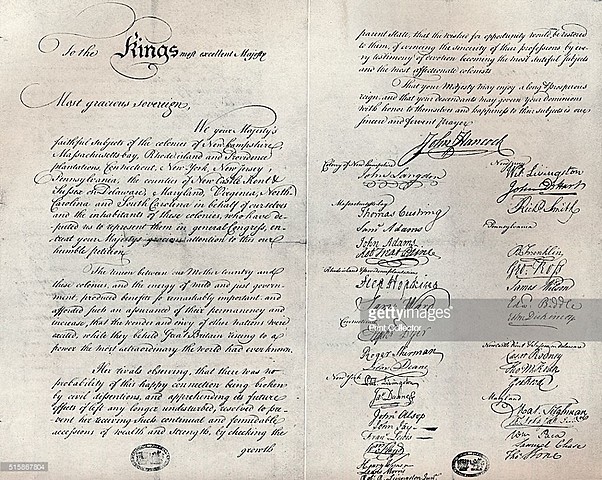 To the Kings most excellent Majesty
Most gracious Sovereign,
We your Majesty's
faithful subjects of the colonies of New hampshire,
Massachusetts bay, Rhode island and Providence
plantations, Connecticut, New York, New Jersey,
Pennsylvania, the counties of New Castle Kent &
Sussex on Delaware, Maryland, Virginia, North
Carolina and South Carolina in behalf of ourselves
and the inhabitants of these colonies, who have de-
puted us to represent them in general Congress, en-
treat your Majestys gracious attention to this our
humble petition.
The union between our Mother Country and
these colonies, and the energy of mild and just govern-
ment produced benefits so remarkably important and
afforded such an assurance of their permanency and
increase, that the wonder and envy of other nations were
excited, while they beheld Great Britain rising to a
power the most extraordinary the world had ever known.
Her rivals observing, that there was no
probability of this happy connection being broken
by civil dissentions, and apprehending its future
effects if left any longer undisturbed, resolved to pre-
vent her receiving such continual and formidable
accessions of wealth and strength, by checking the
growth
parent State, that the wished for opportunity would be restored
to them, of evincing the sincerity of their professions by eve-
ry testimony of devotion becoming the most dutiful subjects
and the most affectionate colonists
That your Majesty may enjoy a long & prosperous
reign, and that your descendants may govern your dominions
with honor to themselves and happiness to their subjects is our
sincere and fervent prayer
John Hancock
Colony of New hampshire
John Langdon
Massachusetts bay
Thomas Cushing
Saml Adams
John Adams
Robt Treat Paine
Rhode island & Providence plantations
Step Hopkins
Sam: Ward
Connecticut
Elipht Dyer
Roger Sherman
Silas Deane
New York
Phil Livingston
Jas Duane
John Alsop
John Jay
Frans Lewis
Wm Floyd
Henry Wisner
Lewis Morris
R. R. Livingston Junr
New Jersey
Wil Livingston
John D. Hart
Richd Smith
Pennsylvania
B Franklin
Geo: Ross
James Wilson
Edw Biddle
John Dickinson
Newcastle Kent & Sussex on Delaware
Caesar Rodney
Tho M:Kean
Geo Read
Maryland
Mat. Tilghman
Wm Paca
Samuel Chase
Tho Stone
gettyimages
Print Collector
515887804